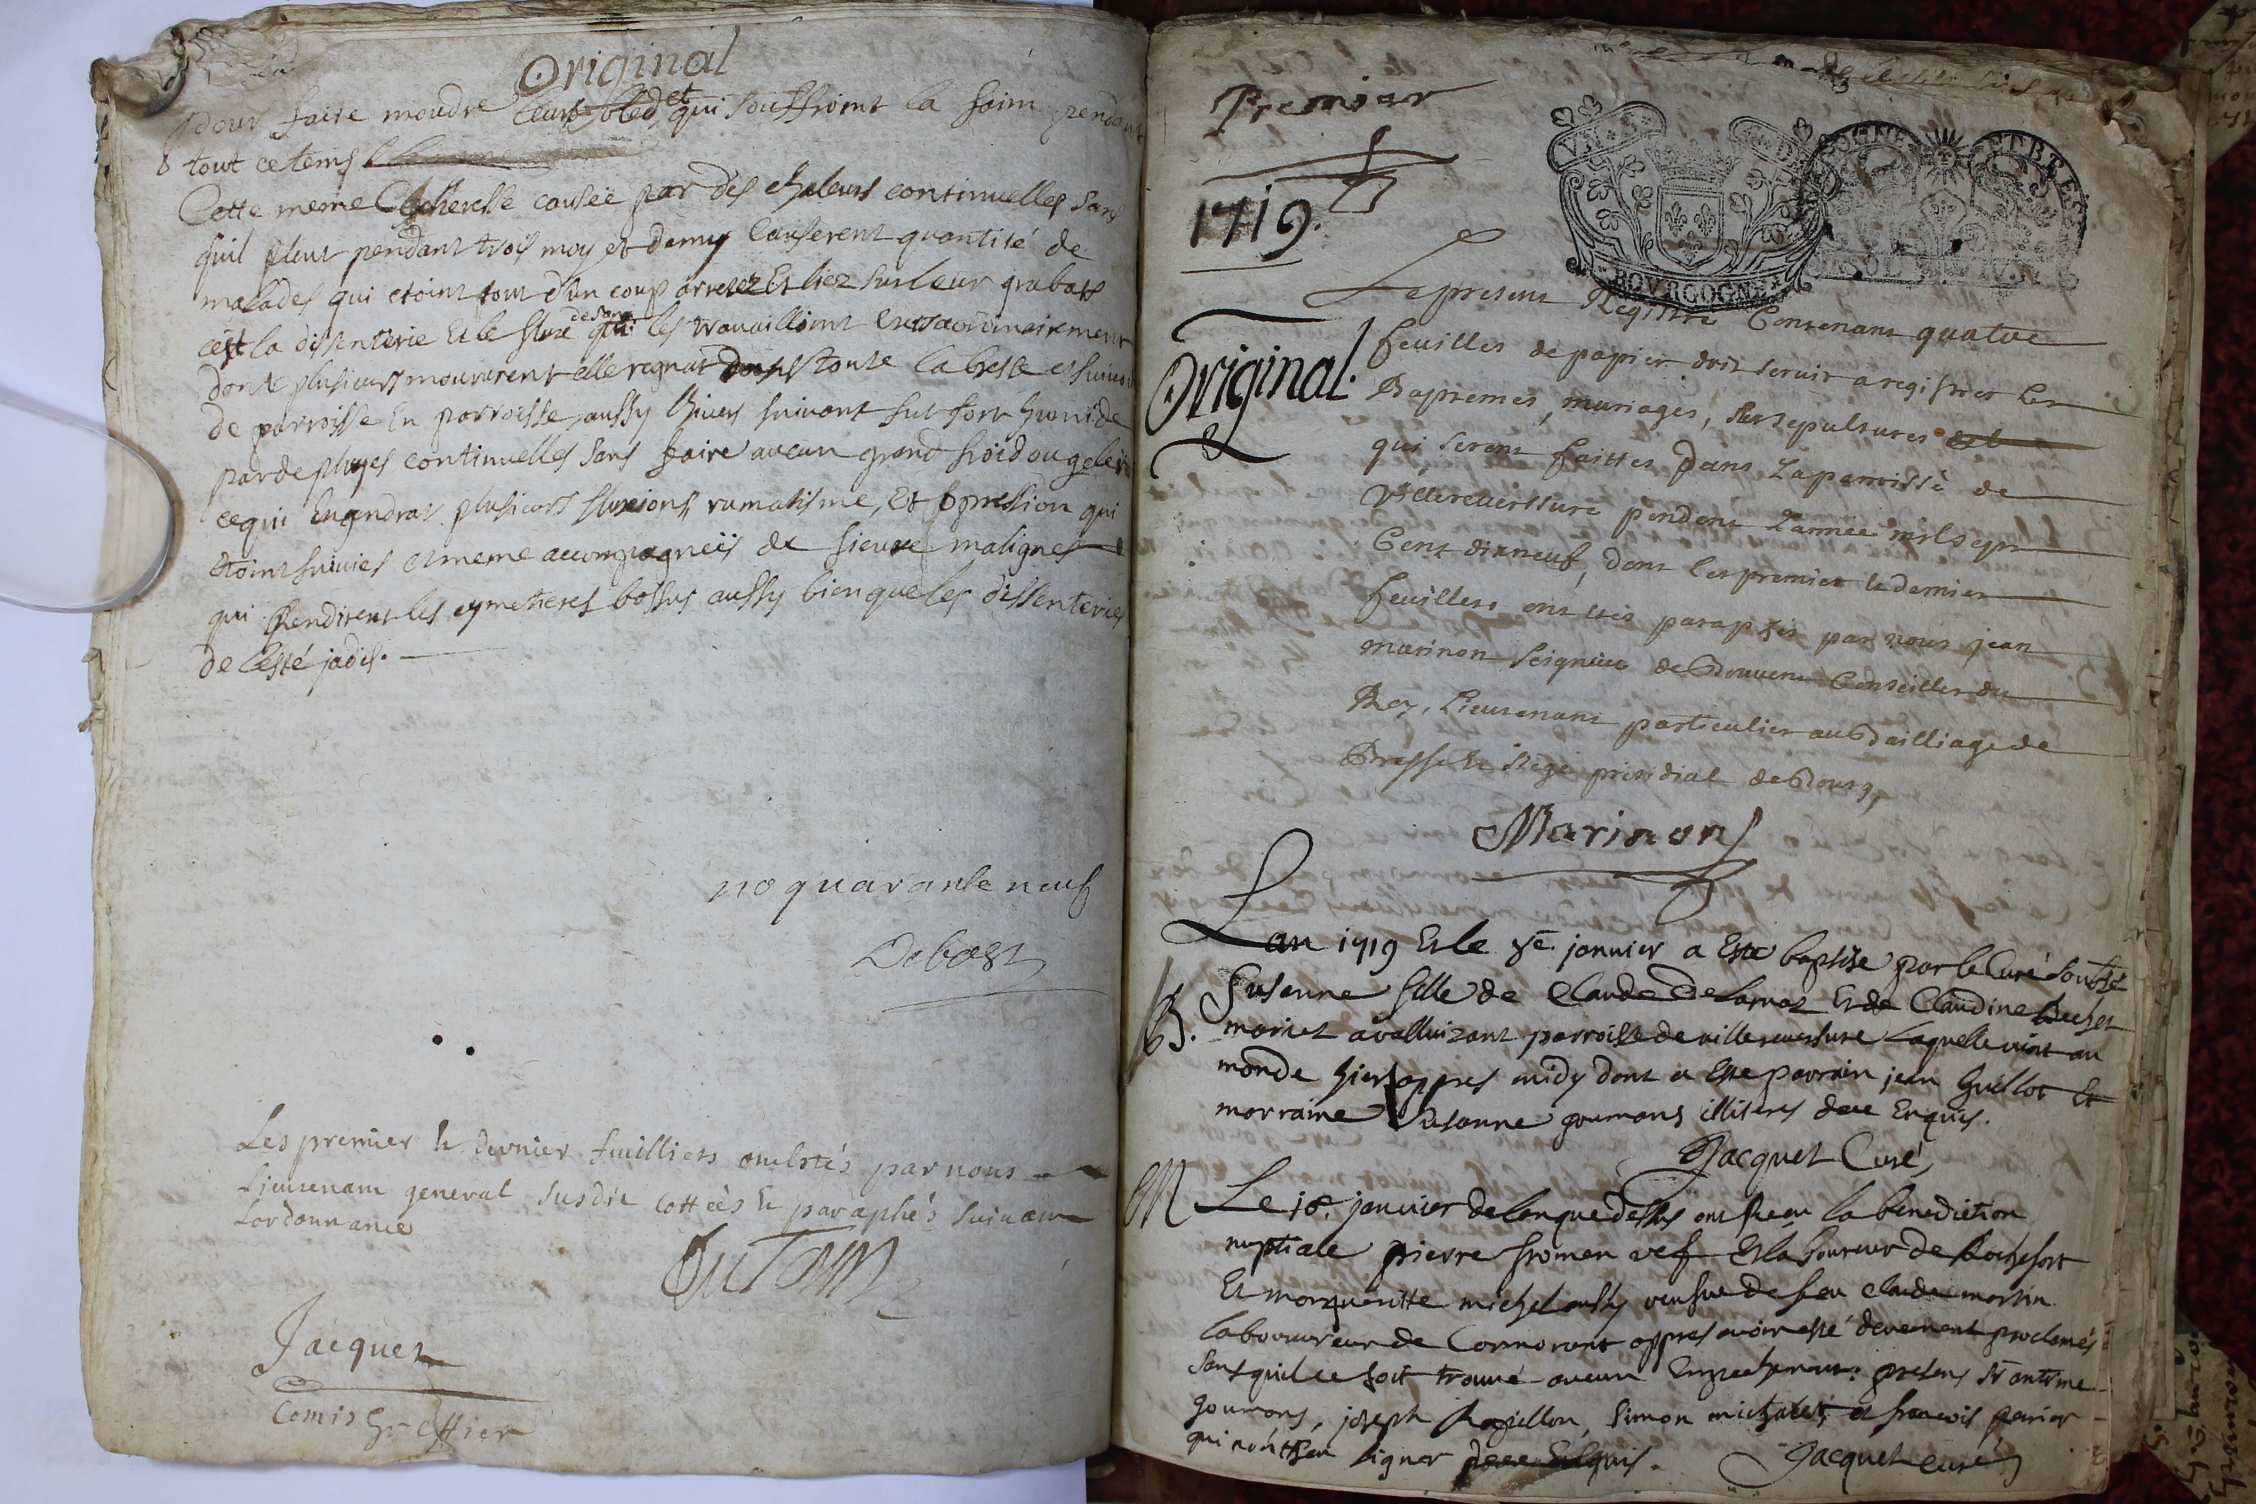 Original
pour faire moudre leurs bled et qui souffroint la faim pendant
tout ce tems
Cette meme secheresse causée par des chaleurs continuelles sans
quil pleut pendant trois moys et demy causerent quantité de
malades qui etoint tout d'un coup arretez Et liez sur leur grabats
cest la dissenterie Et le flux de sang qui les travailloint
dont plusieurs moururent elle regnat dans toute la bresse et
de parroisse En parroisse, aussy lhiver suivant fut fort humide
par de pluyes continuelles sans faire aucun grand froid ou gelée
ce qui Engendrat plusieurs fluxions, rumatisme, Et oppression qui
etoint suivies et meme accompagneës de fieuvre malignes
qui Rendirent les cymetieres bossus aussy bien que les dissenteries
de lesté jadis.
no quarante neuf
Debost
Les premier & dernier feuilliets ont estés par nous
Lieutenant general susdit cottées & paraphés suivant
Lordonnance
Jacquet
Comis Greffier
Premier
1719.
Original.
VN S
BOVRGOGNE
Le present Registre Contenant quatre
feuilles de papier doit servir a registrer les
Baptemes, mariages, sepultures
qui seront faittes dans La parroisse de
Villereverssure pendant Lannée mil sept
Cent dixneuf, dont les premier & dernier
feuillets ont etés paraphés par nous jean
marinon seigneur de Conseiller du
Roy, Lieutenant particulier au Bailliage de
Bresse & siege presidial de Bourg,
Marinon
Lan 1719 Et le janvier a Esté baptise par le Curé soubsé
B. Susanne fille de Claude Delarnat Et de Claudine Buchet
mariet a valluizant parroisse de villereversure Laquelle vint au
monde hier appres midy dont a Esté parrain jean Guillot Et
marraine Susanne goumans illiteres deue Enquis.
Jacquet Curé,
M Le 18. janvier de lan que dessus ont Receu la benediction
nuptiale pierre fromen vef Et laboureur de Rochefort
Et marguéritte michel aussy veufve de feu claude martin
laboureur de Cormorant appres avoir esté deuement proclamés
sans quil ce soit trouvé aucun Empechement: presens Sr antime
goumans, joseph Ravillon, Simon michalet, et francois perier
qui nont sceu signer deue Enquis. Jacquet curé